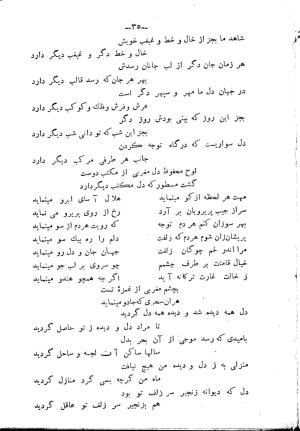 ـ۳۵ـ
شاهد ما بجز از خال و خط و غبغب خویش
خال و خط دگر و غبغب دیگر دارد
هر زمان جان دگر از لب جانان رسدش
بهر هر جان که رسد قالب دیگر دارد
در جهان دل ما مهر و سپهر دگر است
عرش وفرش وفلك وکوکب دیگر دارد
بجز این روز که بینی بودش روز دگر
بجز این شب که تو دانی شب دیگر دارد
دل سواریست که درگاه توجه کردن
جانب هر طرفی مرکب دیگر دارد
لوح محفوظ دل مغربی از مکتب دوست
گشت مسطور که دل مکتب دیگر دارد
مهت هر لحظه از کو مینماید
هلال آسای ابرو مینماید
سراز جیب پریرویان بر آرد
رخ از روی پریرو می نماید
بهر سوزان کنم هر دم توجه
که رویت هردم از سو مینماید
پریشان‌زان شوم هردم که زلفت
دلم را ره بیك سو مینماید
مراندر خم چوگان زلفت
جهان جان و دل رو مینماید
خیال قامتت بر طرف چشمم
چو سروی بر لب جو مینماید
ز خالت غارت ترکانه آید
اگر چه همچو هندو مینماید
بچشم مغربی از غمزهٔ تست
هران سحری که جادو مینماید
دل همه دیده شد و دیده همه دل گردید
تا مراد دل و دیده ز تو حاصل گردید
بامیدی که رسد موجی از آن بحر بدل
سالها ساکن آن لجه و ساحل گردید
منزلی به ز دل و دیده من هیچ نیافت
ماه من گرچه بسی گرد منازل گردید
دل که دیوانه زنجیر سر زلف تو بود
هم بزنجیر سر زلف تو عاقل گردید